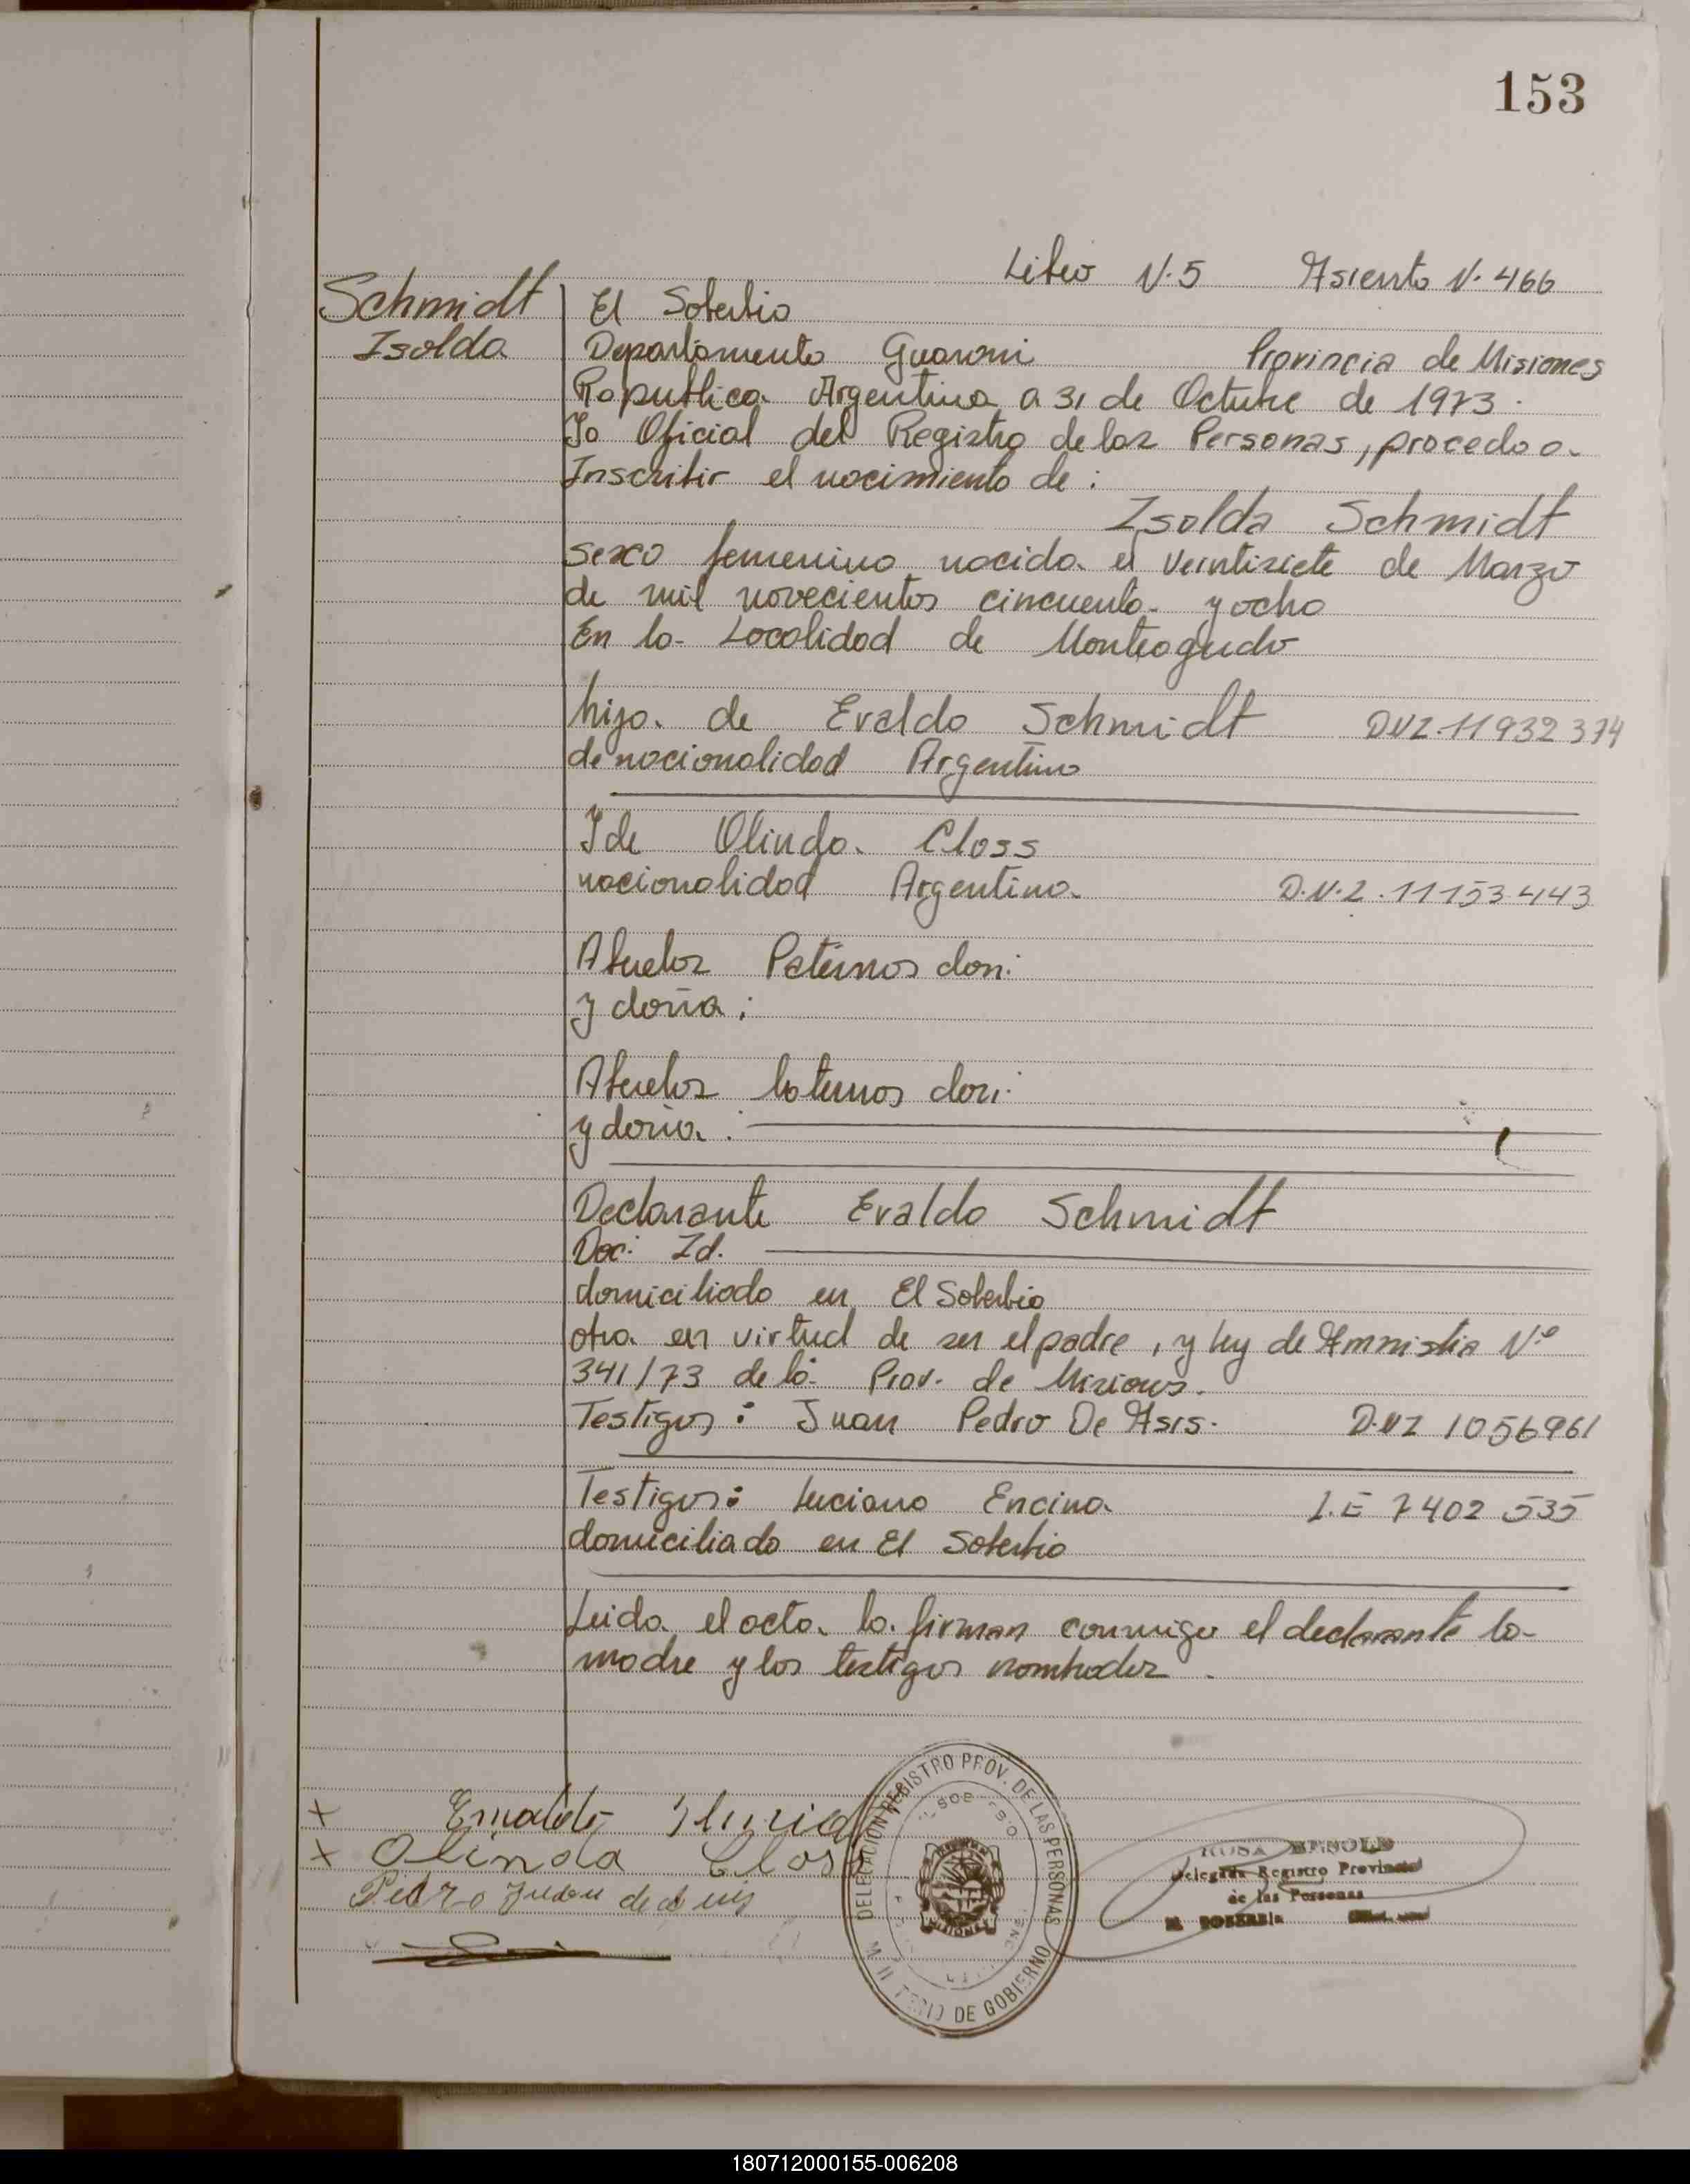 153
Libro N.5 Asiento N. 466
Schmidt
Isolda
El Soberbio
Departamento Guarani Provincia de Misiones
Republica Argentina a 31 de Octubre de 1973.
Yo Oficial del Registro de las Personas, procedo a
Inscribir el nacimiento de :
Isolda Schmidt
sexo femenino nacida el veintisiete de Marzo
de mil novecientos cincuenta y ocho
En la Localidad de Monteagudo
hija de Evaldo Schmidt DNI 11932374
de nacionalidad Argentino
Y de Olinda Closs
nacionalidad Argentina D.N.I. 11153443
Abuelos Paternos don:
y doña :
Abuelos Maternos don:
y doña :
Declarante Evaldo Schmidt
Doc. Id.
domiciliado en El Soberbio
obra en virtud de ser el padre, y ley de Amnistia Nº
341/73 de la Prov. de Misiones.
Testigos : Juan Pedro De Asis. DNI 1056961
Testigos : Luciano Encina L.E 7402535
domiciliado en El Soberbio
Leida el acta la firman conmigo el declarante la
madre y los testigos nombrados.
X
X Olinda Closs
Pedro Juan de
DELEGACION REGISTRO PROV. DE LAS PERSONAS
DE GOBIERNO
MISIONES
ROSA
Delegada Registro Provincial
de las Personas
EL SOBERBIO
180712000155-006208